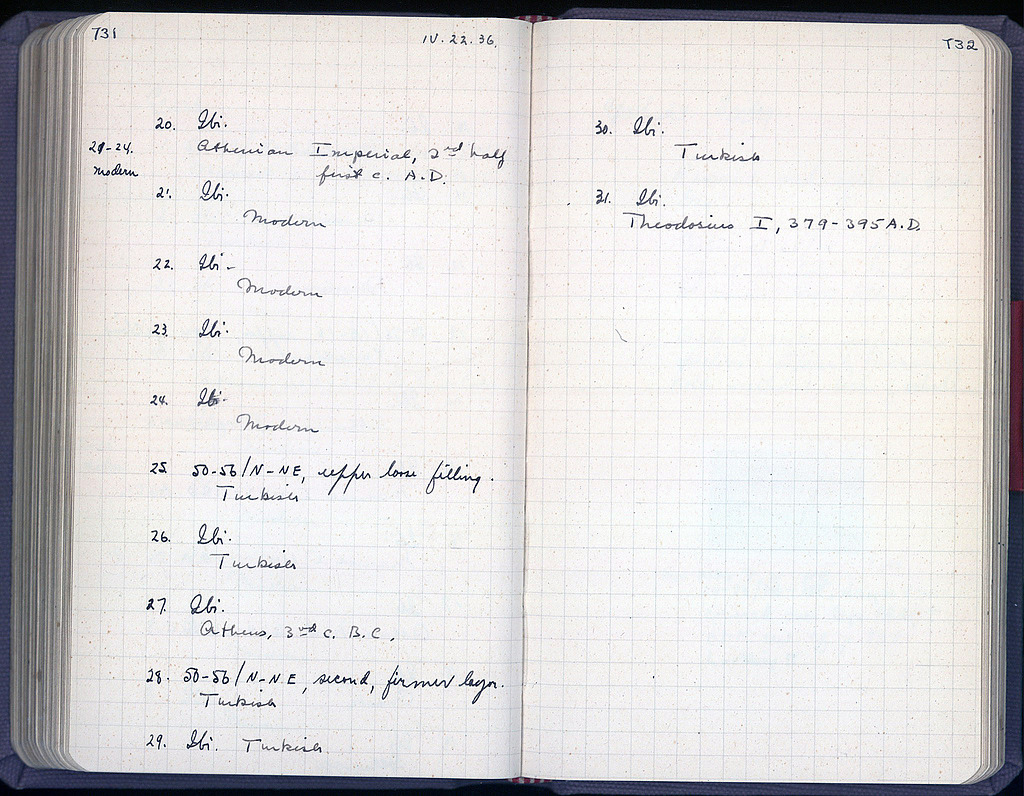 731
IV. 22. 36.
20. Ibi.
21-24.
modern
Athenian Imperial, 2nd half
first c. A.D.
21. Ibi.
Modern
22. Ibi.
Modern
23. Ibi.
Modern
24. Ibi.
Modern
25. 50-56/N-NE, upper loose filling.
Turkish
26. Ibi.
Turkish
27. Ibi.
Athens, 3rd c. B.C.
28. 50-56/N-NE, second, firmer layer.
Turkish
29. Ibi. Turkish
732
30. Ibi.
Turkish
31. Ibi.
Theodosius I, 379-395 A.D.